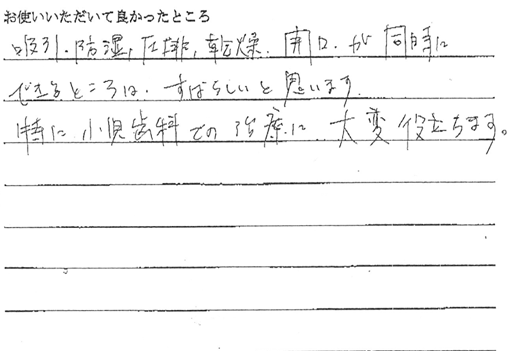 お使いいただいて良かったところ
吸引.防湿,圧排,乾燥.開口.が同時に
できるところは.すばらしいと思います.
特に小児歯科での治療に大変役立ちます。